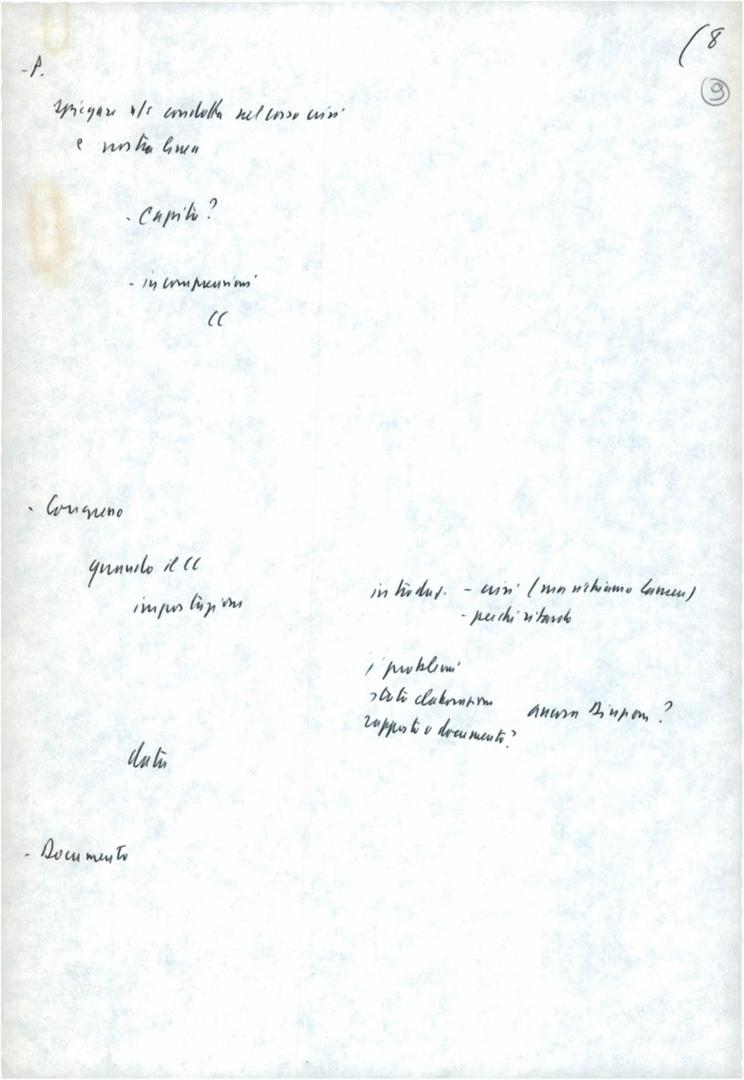 (8
9
- P.
spiegare n/s condotta nel corso crisi
e nostra linea
- Capito?
- incomprensioni
CC
- Congresso
quando il CC
impostazione
introduz. - crisi (ma richiamo
- perché ritardo
i problemi
stato elaborazione
rapporto o documento?
ancora Diapson?
data
- Documento